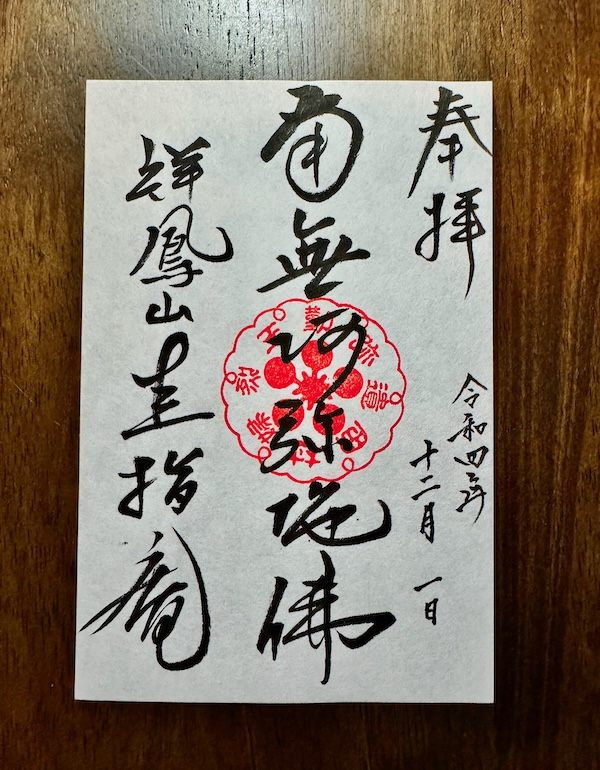 奉拝
令和四年
十二月 一日
南無阿弥陀佛
祥鳳山圭指庵